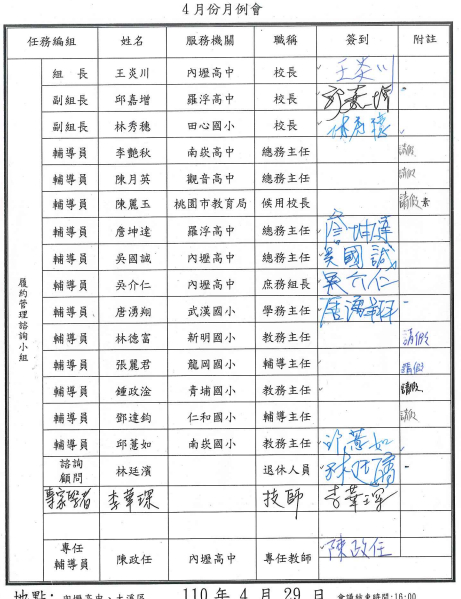 4月份月例會
任務編組 姓名 服務機關 職稱 簽到 附註
履約管理諮詢小組
組長 王炎川 內壢高中 校長 王炎川
副組長 邱嘉增 羅浮高中 校長 邱嘉增
副組長 林秀穗 田心國小 校長 林秀穗
輔導員 李艷秋 南崁高中 總務主任 請假
輔導員 陳月英 觀音高中 總務主任 請假
輔導員 陳麗玉 桃園市教育局 候用校長 請假
輔導員 詹坤達 羅浮高中 總務主任 詹坤達
輔導員 吳國誠 內壢高中 總務主任 吳國誠
輔導員 吳介仁 內壢高中 庶務組長 吳介仁
輔導員 唐湧翔 武漢國小 學務主任 唐湧翔
輔導員 林德富 新明國小 教務主任 請假
輔導員 張麗君 龍岡國小 輔導主任 請假
輔導員 鍾政淦 青埔國小 教務主任 請假
輔導員 鄧達鈞 仁和國小 輔導主任 請假
輔導員 邱蕙如 南崁國小 教務主任 邱蕙如
諮詢顧問 林廷濱 退休人員 林廷濱
專家學者 李華琛 技師 李華琛
專任輔導員 陳政任 內壢高中 專任教師 陳政任
地點: 內壢高中、大溪區 110年4月29日 會議結束時間:16:00